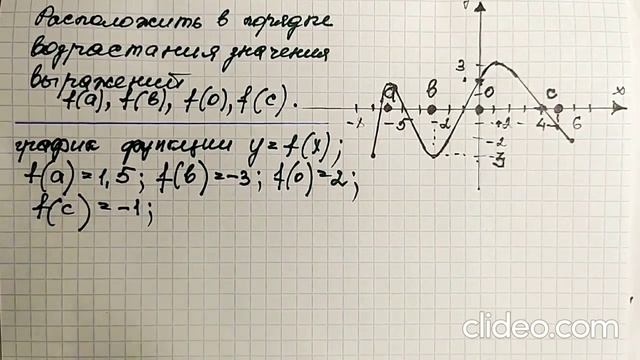 Расположить в порядке
возрастания значения
выражений
f(a), f(в), f(0), f(c).
график функции y = f(x);
f(a) = 1,5; f(в) = -3; f(0) = 2;
f(c) = -1;
y
3
a в 0 c x
-x -5 -2 +2 4 6
-2
-3
clideo.com